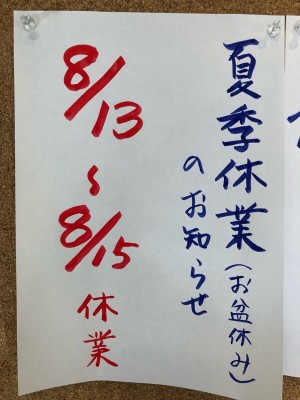 夏季休業(お盆休み)
のお知らせ
8/13
~
8/15
休業